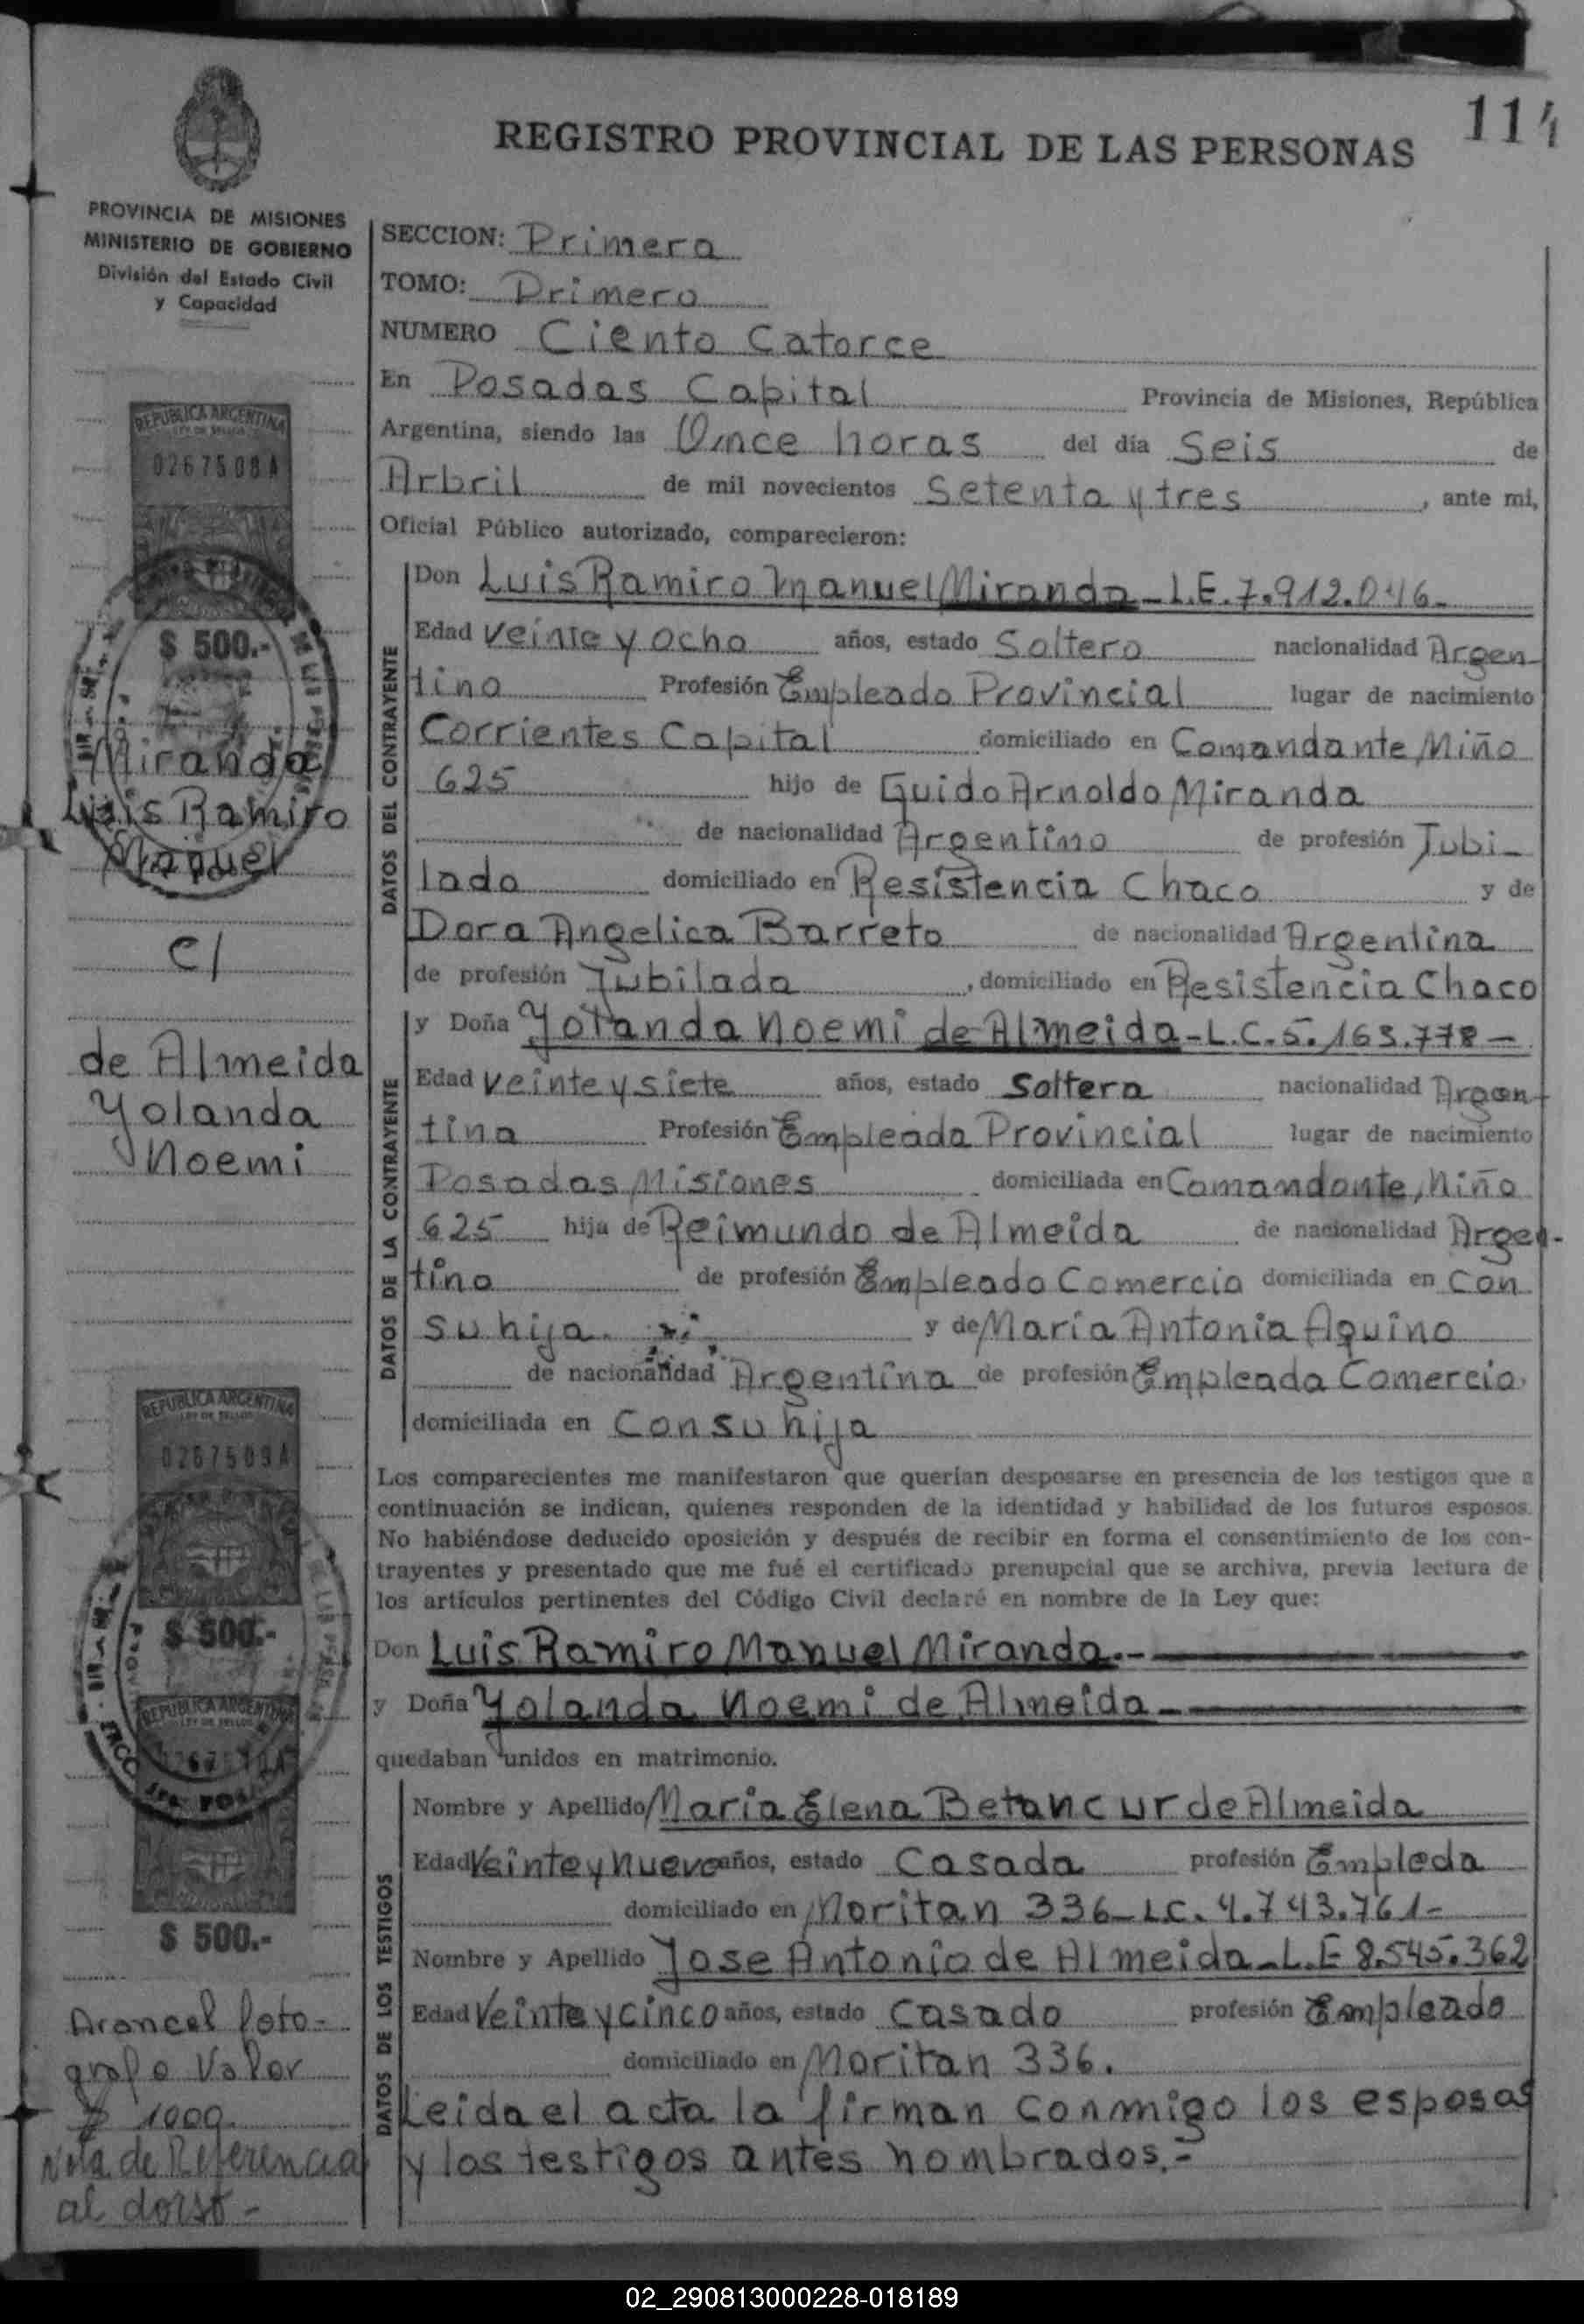 114
REGISTRO PROVINCIAL DE LAS PERSONAS
PROVINCIA DE MISIONES
MINISTERIO DE GOBIERNO
División del Estado Civil
y Capacidad
SECCION: Primera
TOMO: Primero
NUMERO Ciento Catorce
En Posadas Capital Provincia de Misiones, República
Argentina, siendo las Once horas del día Seis de
Arbril de mil novecientos Setenta y tres, ante mi,
Oficial Público autorizado, comparecieron:
DATOS DEL CONTRAYENTE
Don Luis Ramiro Manuel Miranda - L.E. 7.912.046-
Edad veinte y ocho años, estado Soltero nacionalidad Argen-
tino Profesión Empleado Provincial lugar de nacimiento
Corrientes Capital domiciliado en Comandante Miño
625 hijo de Guido Arnoldo Miranda
de nacionalidad Argentino de profesión Jubi-
lado domiciliado en Resistencia Chaco y de
Dora Angelica Barreto de nacionalidad Argentina
de profesión Jubilada, domiciliado en Resistencia Chaco
DATOS DE LA CONTRAYENTE
y Doña Yolanda Noemi de Almeida - L.C. 5.163.778 -
Edad veinte y siete años, estado Soltera nacionalidad Argen-
tina Profesión Empleada Provincial lugar de nacimiento
Posadas Misiones domiciliada en Comandante Miño
625 hija de Reimundo de Almeida de nacionalidad Argen-
tino de profesión Empleado Comercio domiciliada en Con
su hija. y de María Antonia Aquino
de nacionalidad Argentina de profesión Empleada Comercio.
domiciliada en Con su hija
Los comparecientes me manifestaron que querían desposarse en presencia de los testigos que a
continuación se indican, quienes responden de la identidad y habilidad de los futuros esposos.
No habiéndose deducido oposición y después de recibir en forma el consentimiento de los con-
trayentes y presentado que me fué el certificado prenupcial que se archiva, previa lectura de
los artículos pertinentes del Código Civil declaré en nombre de la Ley que:
Don Luis Ramiro Manuel Miranda.-
y Doña Yolanda Noemi de Almeida -
quedaban unidos en matrimonio.
DATOS DE LOS TESTIGOS
Nombre y Apellido María Elena Betancur de Almeida
Edad Veinte y nueve años, estado Casada profesión Empleda
domiciliado en Moritan 336 - L.C. 4.743.761-
Nombre y Apellido Jose Antonio de Almeida - L.E 8.545.362
Edad Veinte y cinco años, estado Casado profesión Empleado
domiciliado en Moritan 336.
Leida el acta la firman conmigo los esposos
y los testigos antes nombrados.-
REPUBLICA ARGENTINA
LEY DE SELLOS
0267508A
$ 500.-
Miranda
Luis Ramiro
Manuel
c/
de Almeida
Yolanda
Noemi
REPUBLICA ARGENTINA
LEY DE SELLOS
0267509A
$ 500.-
REPUBLICA ARGENTINA
LEY DE SELLOS
0267510A
$ 500.-
Arancel foto-
grafo Valor
$ 1000.
Nota de Referencia
al dorso-
02_290813000228-018189